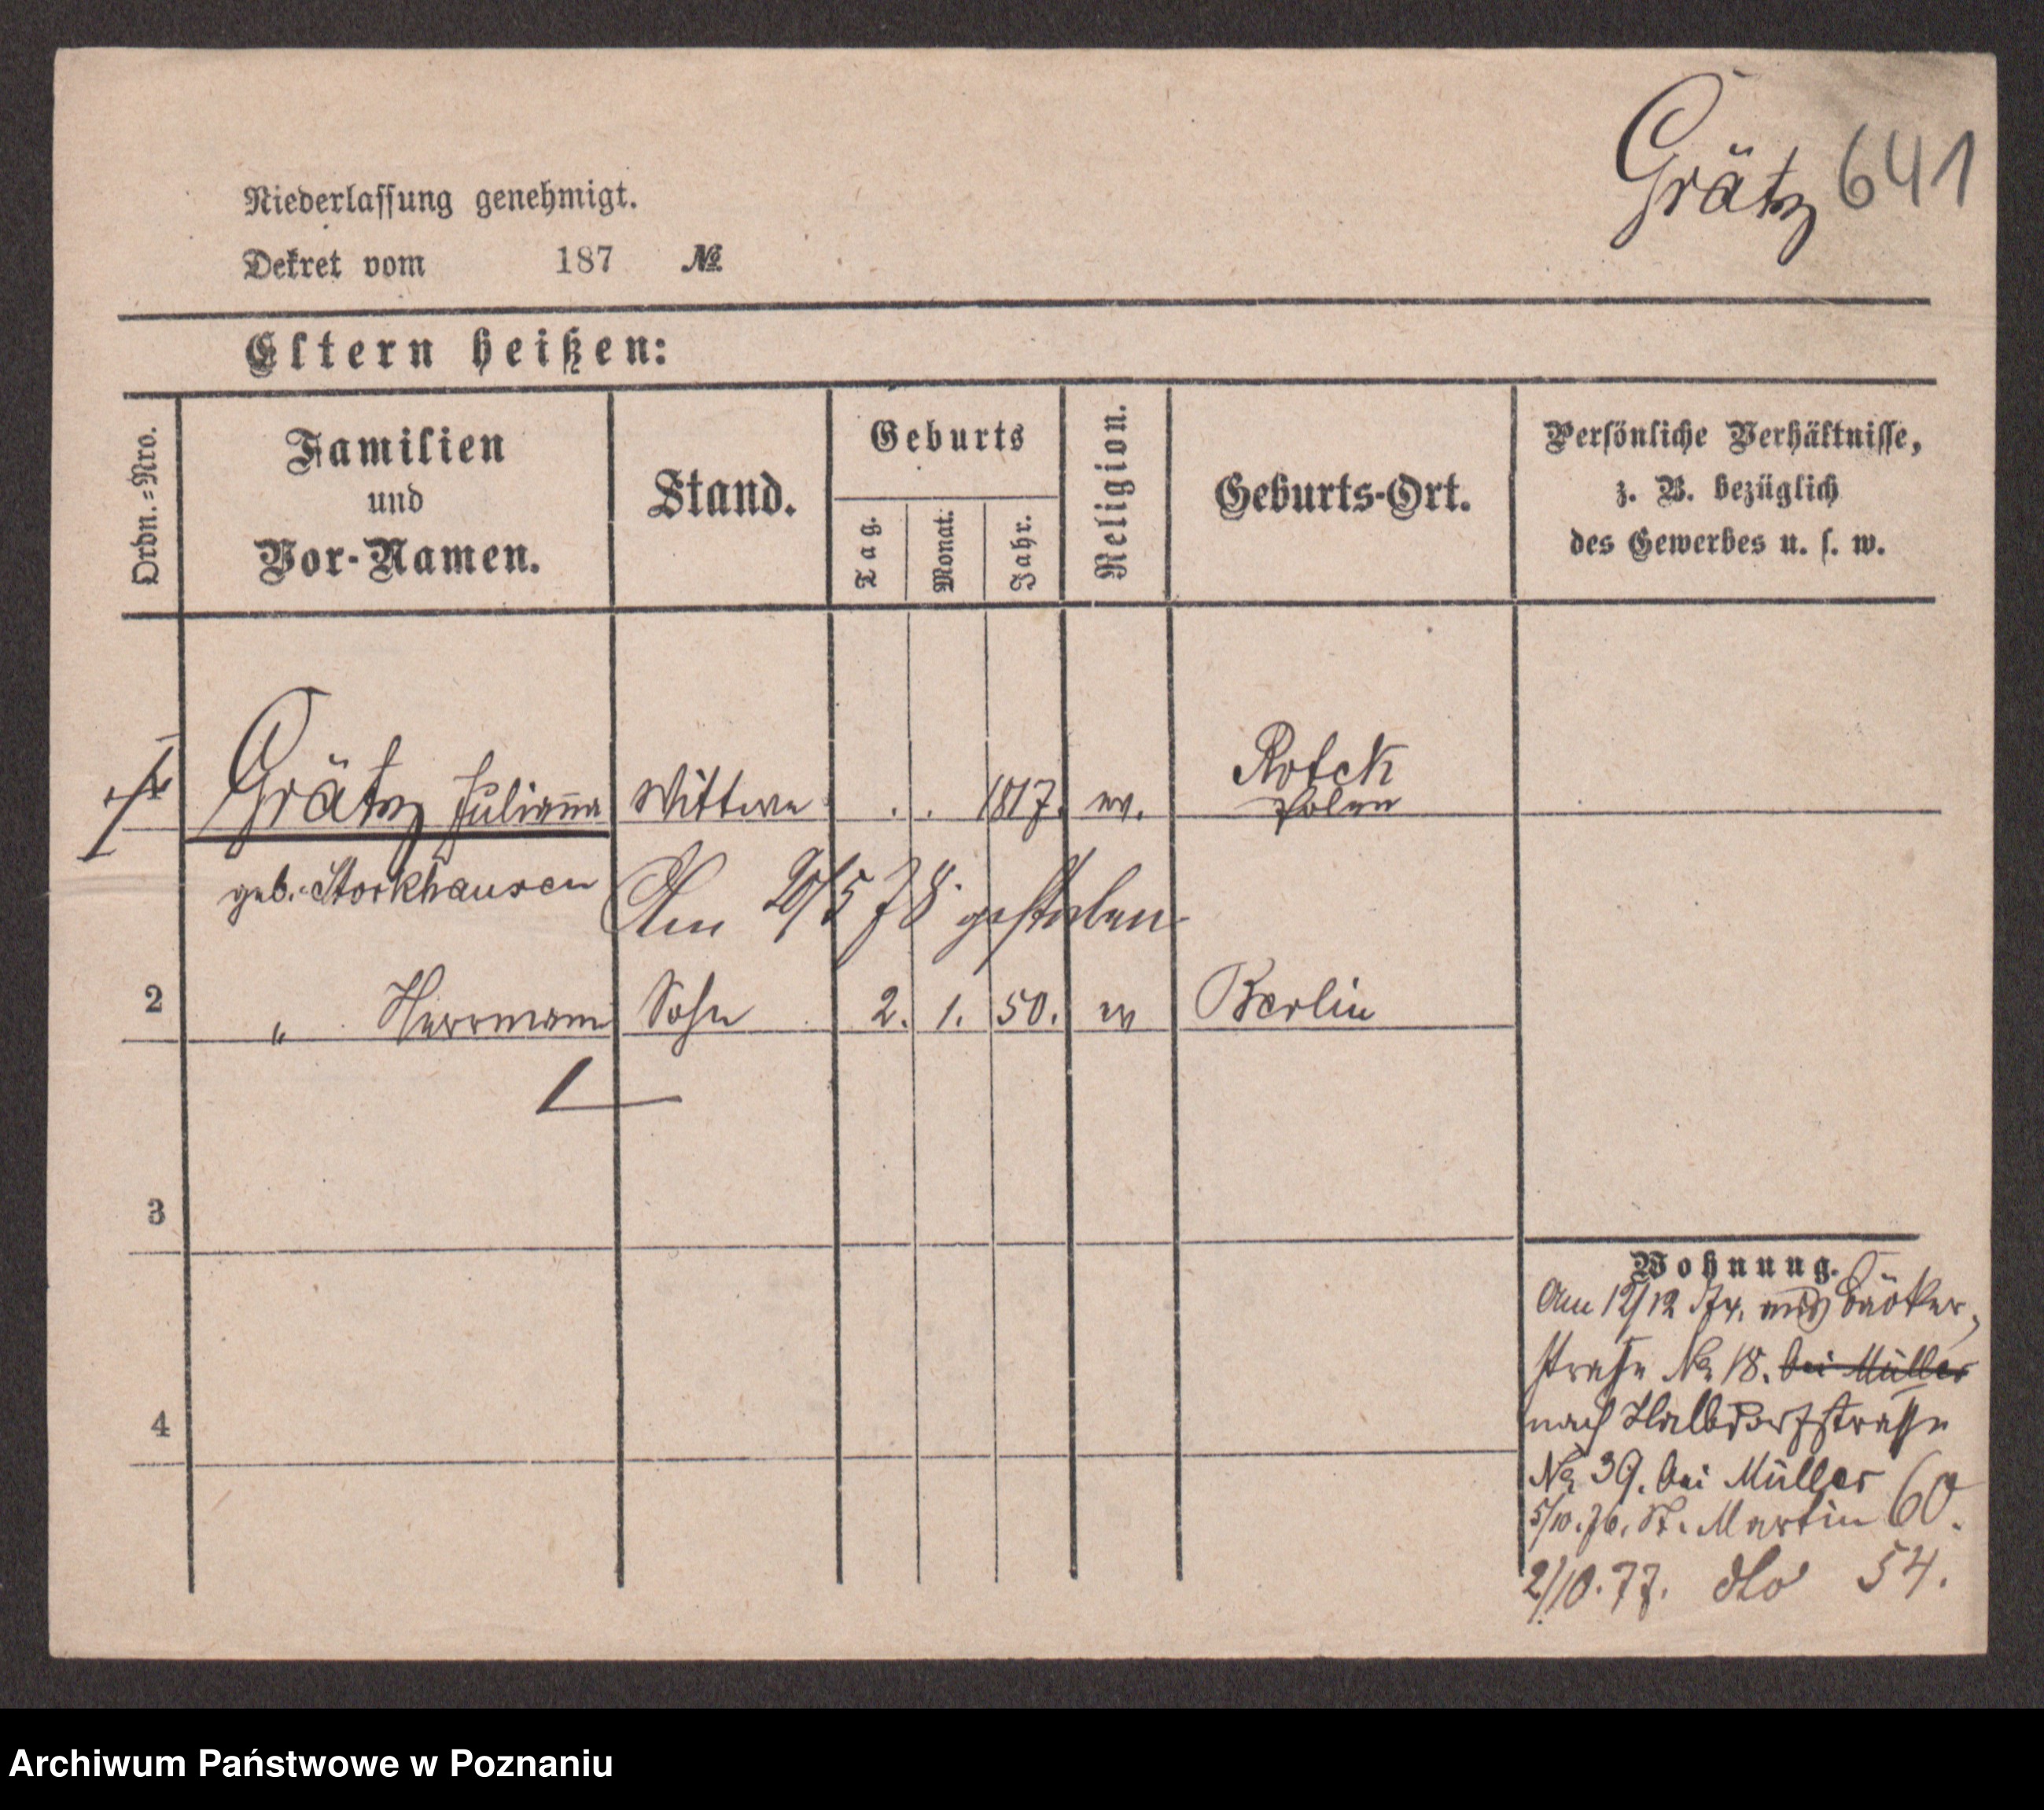 Grätz 641
Niederlassung genehmigt.
Dekret vom 187 №
Eltern heißen:
Ordn.=Nro.
Familien
und
Vor-Namen.
Stand.
Geburts
Tag.
Monat.
Jahr.
Religion.
Geburts-Ort.
Persönliche Verhältnisse,
z. B. bezüglich
des Gewerbes u. s. w.
Grätz Julianna Wittwe . . 1817. ev. Rotck
Polen
geb. Storkhausen
Am 20/5 78 gestorben
2 " Herrmann Sohn 2. 1. 50. ev Berlin
3
4
Wohnung.
Am 12/12 74. aus Bäcker-
straße No 18. bei Müller
nach Halbdorfstraße
No 39. bei Müller
5/10.76. St. Martin 60.
2/10.77. dto 54.
Archiwum Państwowe w Poznaniu